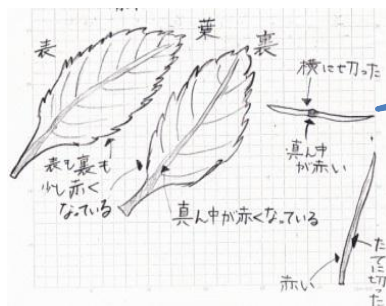 表
葉
裏
横に切った
真ん中
が赤い
表も裏も
少し赤く
なっている
真ん中が赤くなっている
赤い
たてに切った